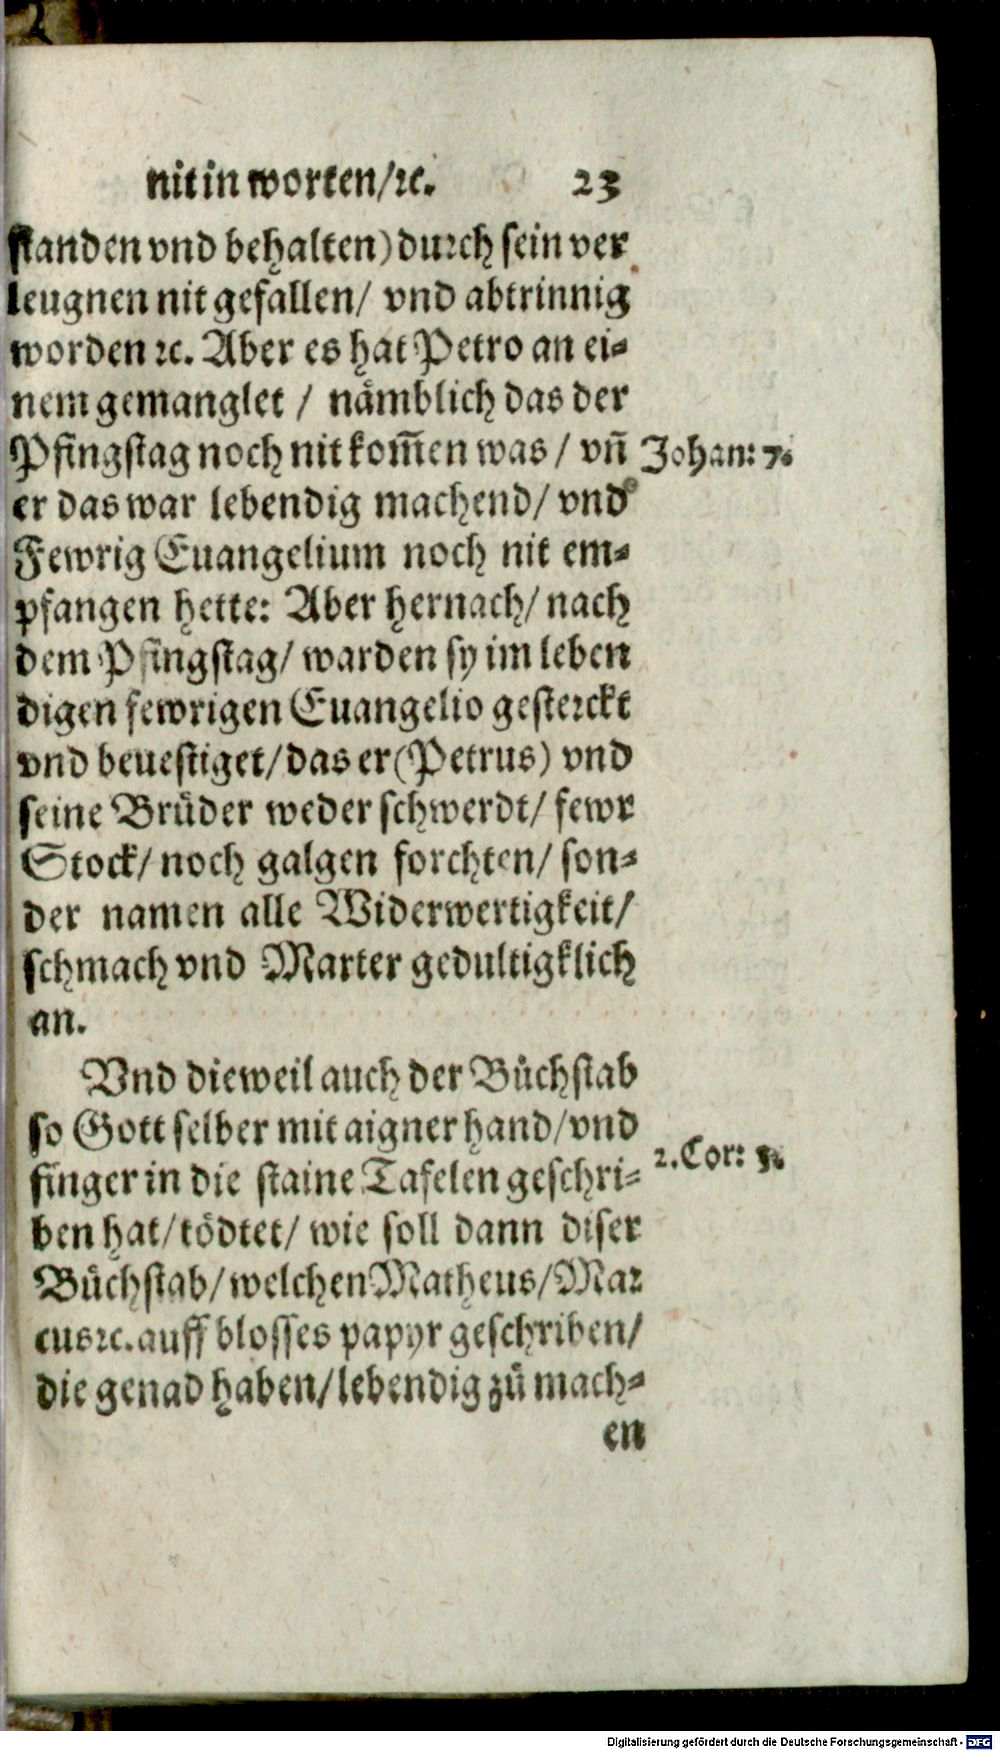 nit in worten/ꝛc. 23
standen vnd behalten) durch sein ver
leugnen nit gefallen/ vnd abtrinnig
worden ꝛc. Aber es hat Petro an ei⸗
nem gemanglet / nämblich das der
Pfingstag noch nit kom̃en was / vñ Johan: 7.
er das war lebendig machend/ vnd
Fewrig Euangelium noch nit em⸗
pfangen hette: Aber hernach/ nach
dem Pfingstag/ warden sy im leben
digen fewrigen Euangelio gesterckt
vnd beuestiget/ das er (Petrus) vnd
seine Brüder weder schwerdt/ fewr
Stock/ noch galgen forchten/ son⸗
der namen alle Widerwertigkeit/
schmach vnd Marter gedultigklich
an.
Vnd dieweil auch der Bůchstab
so Gott selber mit aigner hand/ vnd
finger in die staine Tafelen geschri⸗ 2. Cor: 3.
ben hat/ tödtet/ wie soll dann diser
Bůchstab/ welchen Matheus/ Mar
cus ꝛc. auff blosses papyr geschriben/
die genad haben/ lebendig zů mach⸗
en
Digitalisierung gefördert durch die Deutsche Forschungsgemeinschaft - DFG